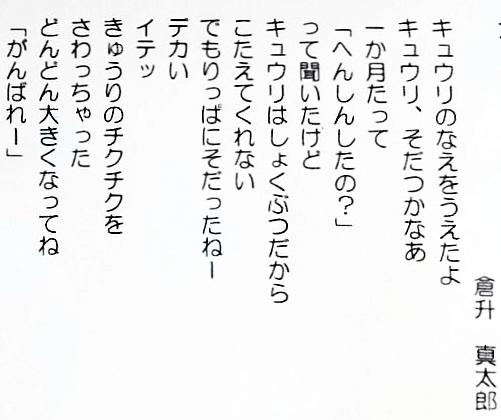 倉升　真太郎
キュウリのなえをうえたよ
キュウリ、そだつかなあ
一か月たって
「へんしんしたの？」
って聞いたけど
キュウリはしょくぶつだから
こたえてくれない
でもりっぱにそだったねー
デカい
イテッ
きゅうりのチクチクを
さわっちゃった
どんどん大きくなってね
「がんばれー」